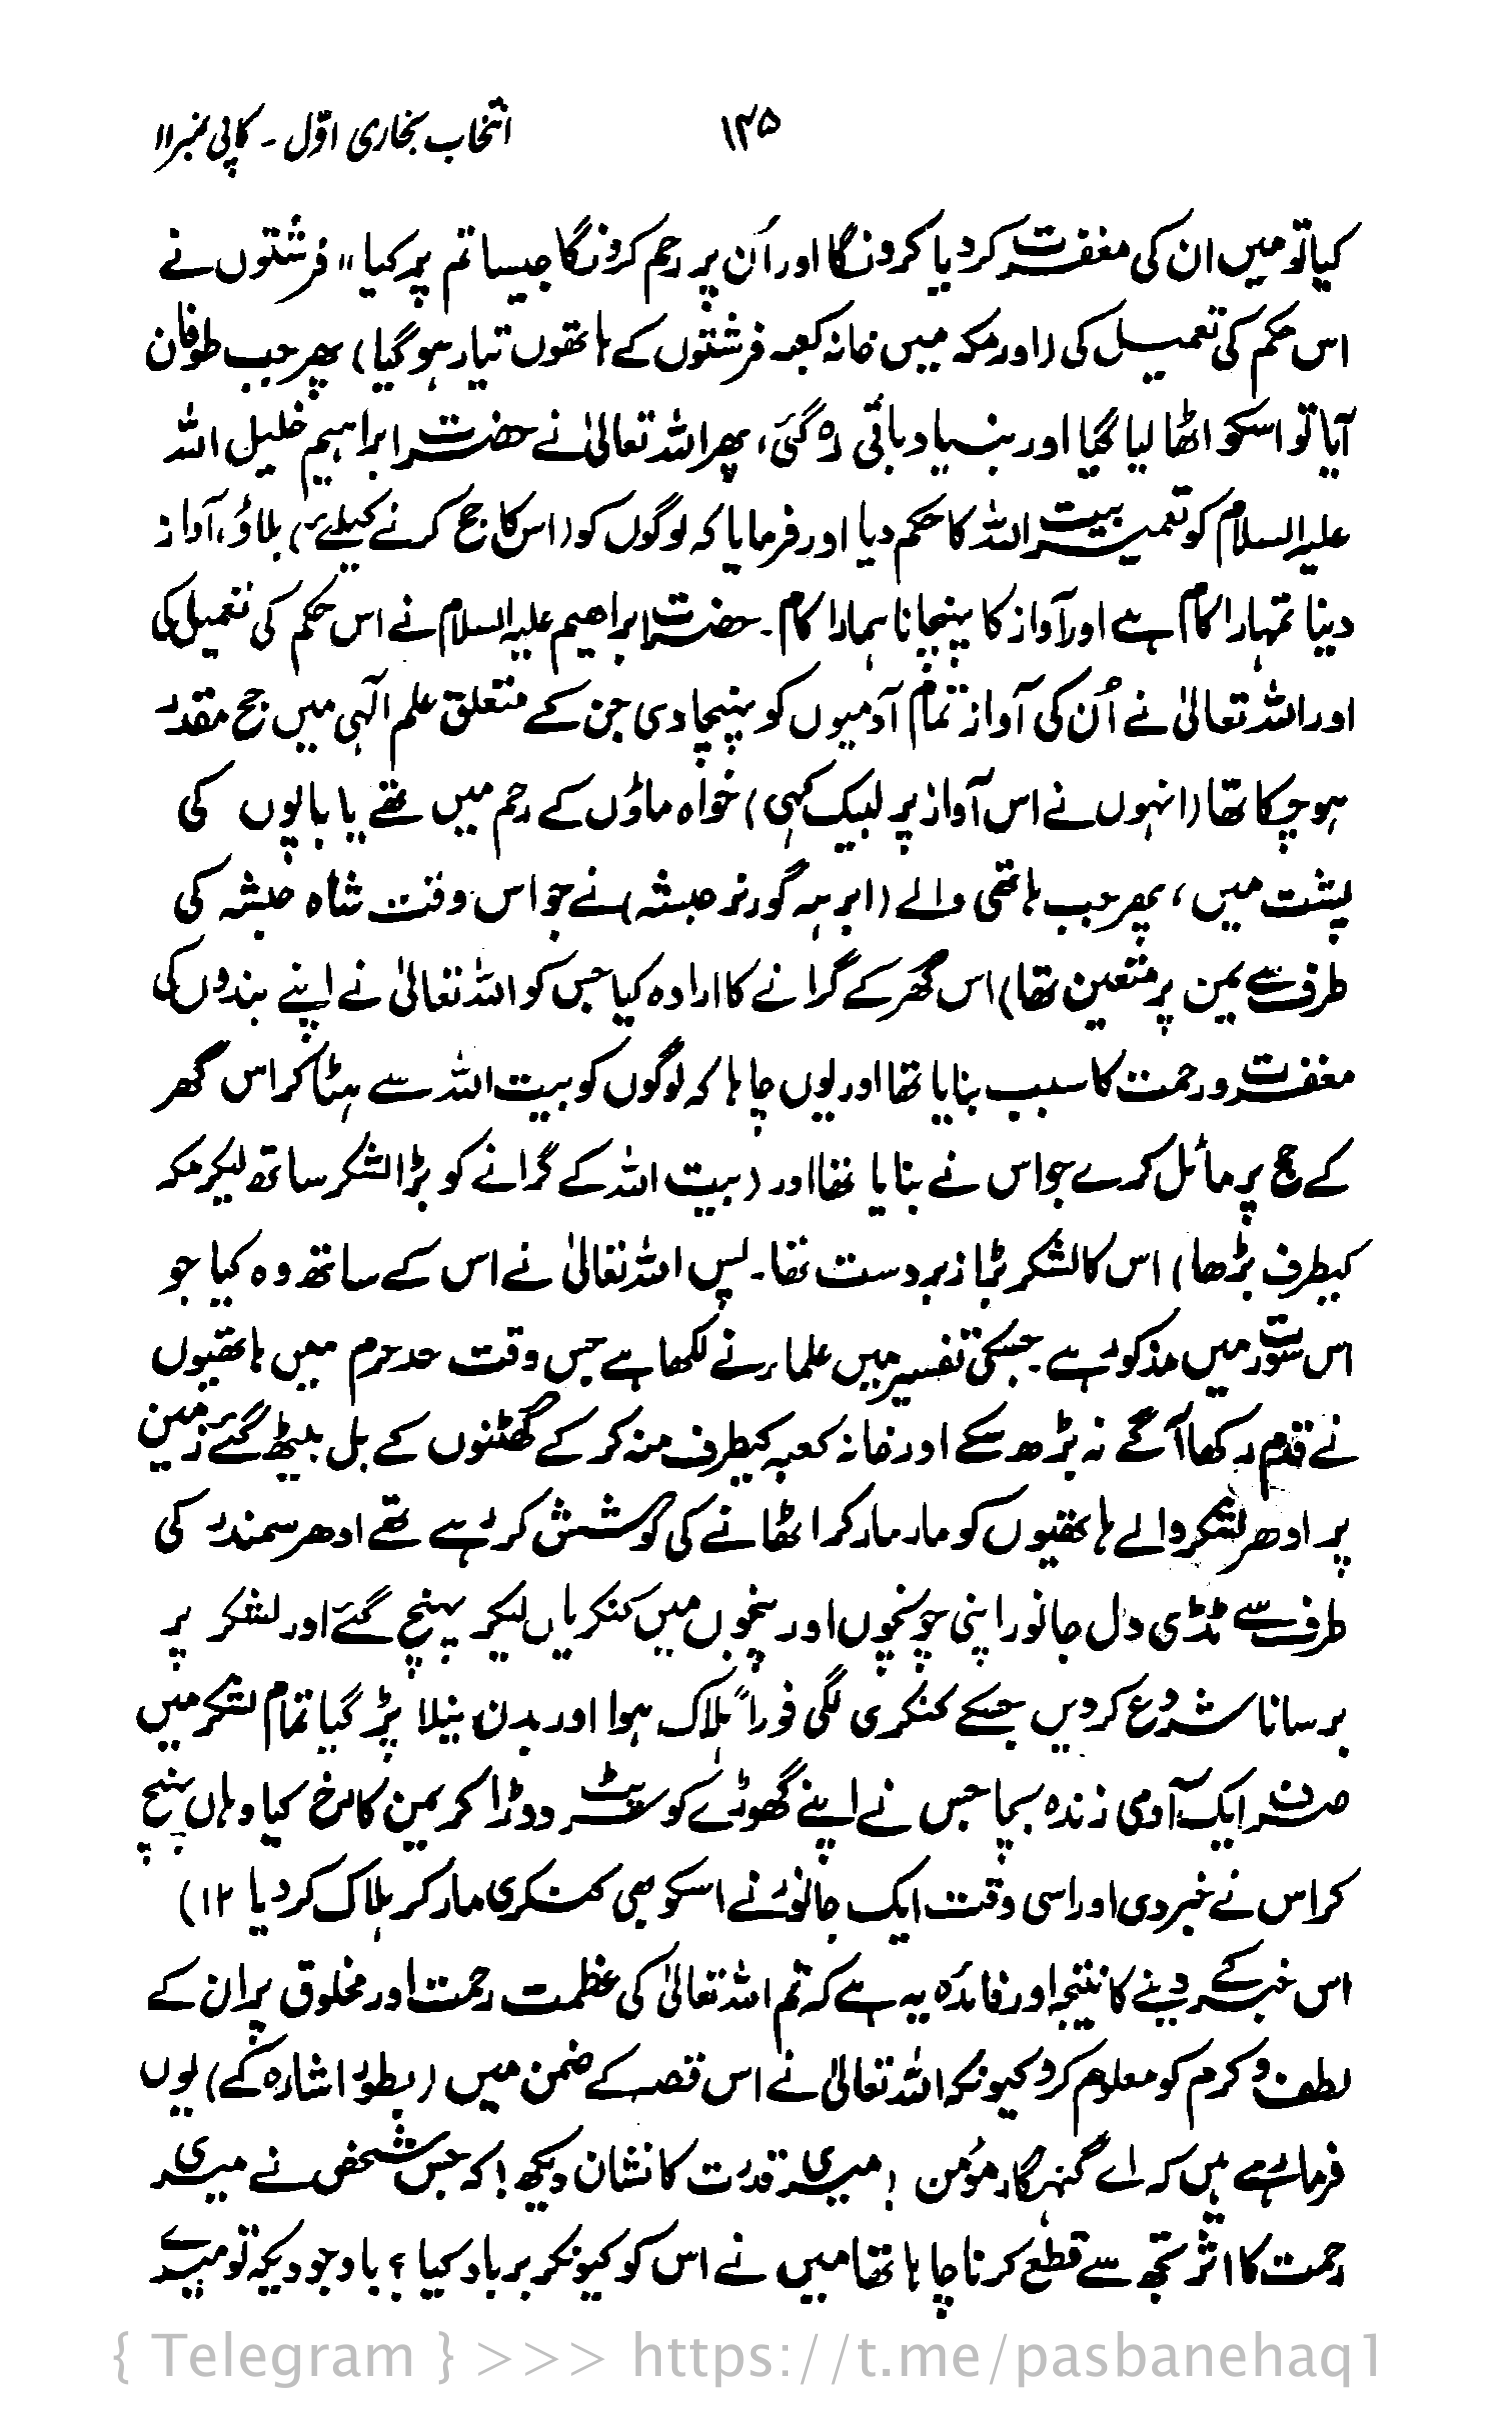 انتخاب بخاری اوّل - کاپی نمبر ۱۱
۱۳۵
کیا تو میں ان کی مغفرت کردیا کرونگا اور اُن پر رحم کرونگا جیسا تم پر کیا " فرشتوں نے
اس حکم کی تعمیل کی (اور مکہ میں خانہ کعبہ فرشتوں کے ہاتھوں تیار ہوگیا) پھر جب طوفان
آیا تو اسکو اٹھا لیا گیا اور بنیاد باقی رہ گئی، پھر اللہ تعالیٰ نے حضرت ابراہیم خلیل اللہ
علیہ السلام کو تعمیر بیت اللہ کا حکم دیا اور فرمایا کہ لوگوں کو (اس کا حج کرنے کیلئے) بلاؤ، آواز
دینا تمہارا کام ہے اور آواز کا پہنچانا ہمارا کام ۔ حضرت ابراھیم علیہ السلام نے اس حکم کی تعمیل کی
اور اللہ تعالیٰ نے اُن کی آواز تمام آدمیوں کو پہنچادی جن کے متعلق علم الٰہی میں حج مقدر
ہوچکا تھا (انہوں نے اس آواز پر لبیک کہی) خواہ ماؤں کے رحم میں تھے یا باپوں کی
پشت میں، پھر جب ہاتھی والے (ابرہہ گورنر حبشہ) نے جو اس وقت شاہ حبشہ کی
طرف سے یمن پر متعین تھا) اس گھر کے گرانے کا ارادہ کیا جس کو اللہ تعالیٰ نے اپنے بندوں کی
مغفرت و رحمت کا سبب بنایا تھا اور یوں چاہا کہ لوگوں کو بیت اللہ سے ہٹا کر اس گھر
کے حج پر مائل کرے جو اس نے بنایا تھا اور (بیت اللہ کے گرانے کو بڑا لشکر ساتھ لیکر مکہ
کیطرف بڑھا) اس کا لشکر بڑا زبردست تھا ۔ پس اللہ تعالیٰ نے اس کے ساتھ وہ کیا جو
اس سورت میں مذکور ہے ۔ جسکی تفسیر میں علماء نے لکھا ہے جس وقت حد حرم میں ہاتھیوں
نے قدم رکھا آگے نہ بڑھ سکے اور خانہ کعبہ کیطرف منہ کر کے گھٹنوں کے بل بیٹھ گئے زمین
پر ادھر لشکر والے ہاتھیوں کو مار مار کر اٹھانے کی کوشش کر رہے تھے ادھر سمندر کی
طرف سے ٹڈی دل جانور اپنی چونچوں اور پنجوں میں کنکریاں لیکر پہنچ گئے اور لشکر پر
برسانا شروع کردیں جسکے کنکری لگی فوراً ہلاک ہوا اور بدن نیلا پڑ گیا تمام لشکر میں
صرف ایک آدمی زندہ بچا جس نے اپنے گھوڑے کو سرپٹ دوڑا کر یمن کا رخ کیا وہاں پہنچ
کر اس نے خبر دی اور اسی وقت ایک جانور نے اسکو بھی کنکری مار کر ہلاک کر دیا ۱۲)
اس خبر کے دینے کا نتیجہ اور فائدہ یہ ہے کہ تم اللہ تعالیٰ کی عظمت رحمت اور مخلوق پر ان کے
لطف و کرم کو معلوم کرو کیونکہ اللہ تعالیٰ نے اس قصہ کے ضمن میں (بطور اشارہ کے) یوں
فرما رہے ہیں کہ اے گنہگار مؤمن ! میری قدرت کا نشان دیکھ ! کہ جس شخص نے میری
رحمت کا اثر تجھ سے قطع کرنا چاہا تھا میں نے اس کو کیونکر برباد کیا ؟ باوجودیکہ تو میرے
{ Telegram } >>> https://t.me/pasbanehaq1